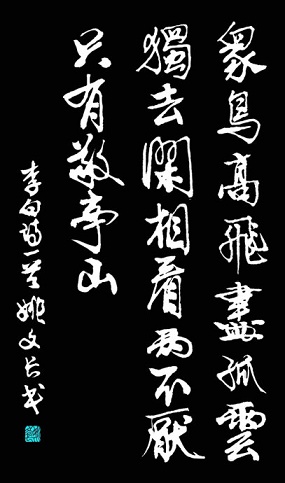 衆鳥高飛盡孤雲
獨去閑相看兩不厭
只有敬亭山
李白詩一首 姚文长书